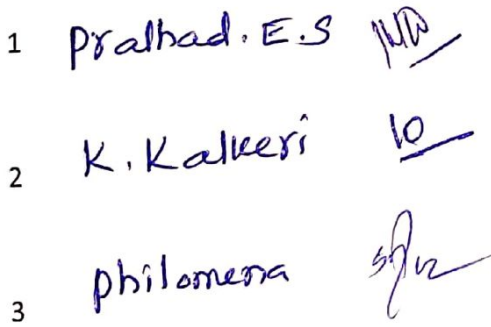 1 Pralhad. E.S
2 K. Kalkeri
3 philomena